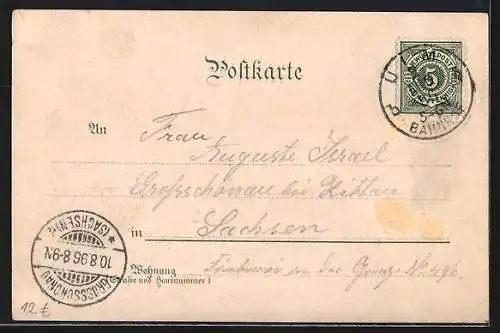 Postkarte
ULM
5-6
BAHNHOF
5
An Frau
Auguste Israel
Großschönau bei Zittau
in Sachsen
Wohnung an der Grenz No 496.
(Straße und Hausnummer)
GROSSSCHÖNAU
10.8.96.8-9N.
* (SACHSEN) *
12 €